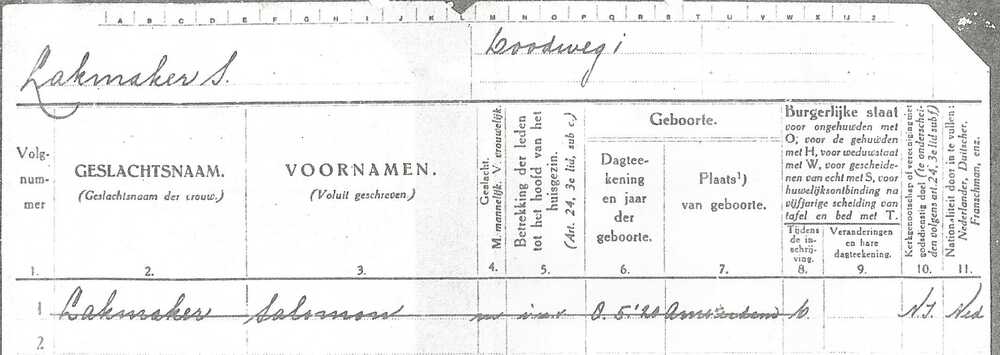 A B C D E F G H I J K L M N O P Q R S T U V W X IJ Z
Loodweg 1
Lakmaker S.
Volg-
num-
mer
GESLACHTSNAAM.
(Geslachtsnaam der vrouw.)
VOORNAMEN.
(Voluit geschreven)
Geslacht.
M. mannelijk. V. vrouwelijk.
Betrekking der leden
tot het hoofd van het
huisgezin.
(Art. 24, 3e lid, sub c.)
Geboorte.
Dagtee-
kening
en jaar
der
geboorte.
Plaats¹)
van geboorte.
Burgerlijke staat
voor ongehuwden met
O; voor de gehuwden
met H, voor weduwstaat
met W, voor gescheide-
nen van echt met S, voor
huwelijksontbinding na
vijfjarige scheiding van
tafel en bed met T.
Tijdens
de in-
schrij-
ving.
Veranderingen
en hare
dagteekening.
Kerkgenootschap of vereeniging met
godsdienstig doel (te onderschei-
den volgens art. 24, 3e lid sub f)
Nationaliteit door in te vullen:
Nederlander, Duitscher,
Franschman, enz.
1. 2. 3. 4. 5. 6. 7. 8. 9. 10. 11.
1 Lakmaker Salomon m 5.'20 Amsterdam N.I. Ned
2.